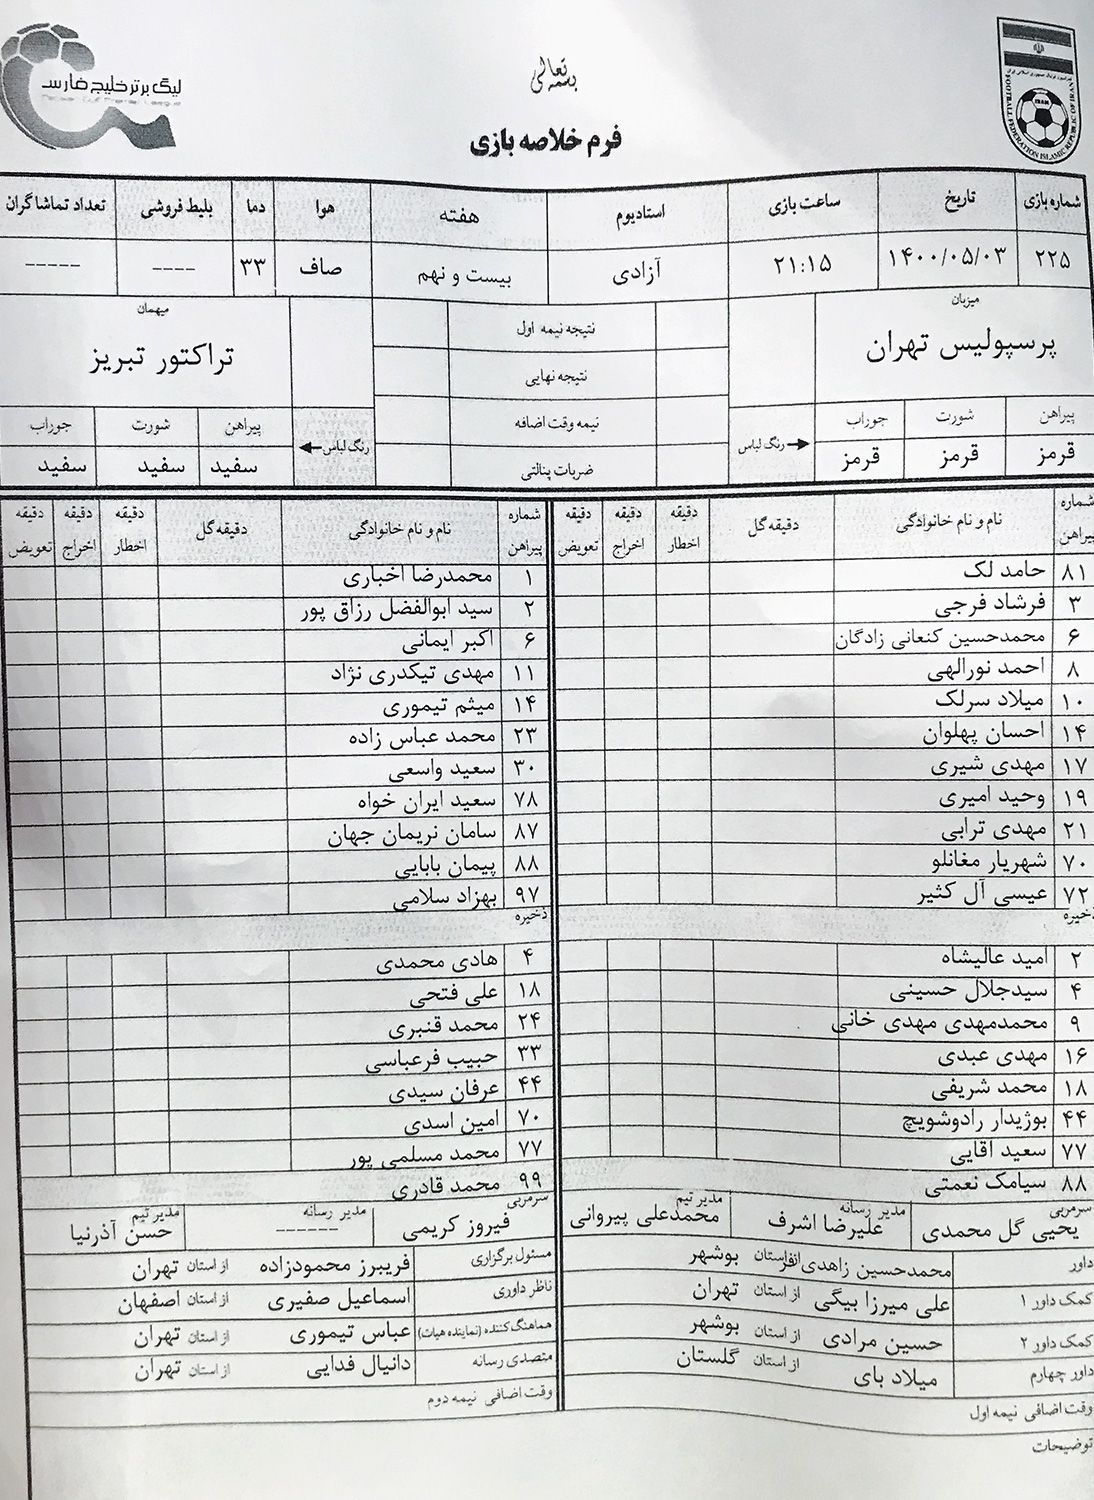 بسمه تعالی
لیگ برتر خلیج فارس
FOOTBALL FEDERATION ISLAMIC REPUBLIC OF IRAN
IRAN
فرم خلاصه بازی
شماره بازی تاریخ ساعت بازی استادیوم هفته هوا دما بلیط فروشی تعداد تماشاگران
۲۲۵ ۱۴۰۰/۰۵/۰۳ ۲۱:۱۵ آزادی بیست و نهم صاف ۳۳ ---- -----
میزبان نتیجه نیمه اول میهمان
پرسپولیس تهران نتیجه نهایی تراکتور تبریز
پیراهن شورت جوراب رنگ لباس نیمه وقت اضافه رنگ لباس پیراهن شورت جوراب
قرمز قرمز قرمز ضربات پنالتی سفید سفید سفید
شماره پیراهن نام و نام خانوادگی دقیقه گل دقیقه اخطار دقیقه اخراج دقیقه تعویض
۸۱ حامد لک
۳ فرشاد فرجی
۶ محمدحسین کنعانی زادگان
۸ احمد نورالهی
۱۰ میلاد سرلک
۱۴ احسان پهلوان
۱۷ مهدی شیری
۱۹ وحید امیری
۲۱ مهدی ترابی
۷۰ شهریار مغانلو
۷۲ عیسی آل کثیر
ذخیره
۲ امید عالیشاه
۴ سیدجلال حسینی
۹ محمدمهدی مهدی خانی
۱۶ مهدی عبدی
۱۸ محمد شریفی
۴۴ بوژیدار رادوشویچ
۷۷ سعید آقایی
۸۸ سیامک نعمتی
سرمربی یحیی گل محمدی مدیر رسانه علیرضا اشرف مدیر تیم محمدعلی پیروانی
شماره پیراهن نام و نام خانوادگی دقیقه گل دقیقه اخطار دقیقه اخراج دقیقه تعویض
۱ محمدرضا اخباری
۲ سید ابوالفضل رزاق پور
۶ اکبر ایمانی
۱۱ مهدی تیکدری نژاد
۱۴ میثم تیموری
۲۳ محمد عباس زاده
۳۰ سعید واسعی
۷۸ سعید ایران خواه
۸۷ سامان نریمان جهان
۸۸ پیمان بابایی
۹۷ بهزاد سلامی
ذخیره
۴ هادی محمدی
۱۸ علی فتحی
۲۴ محمد قنبری
۳۳ حبیب فرعباسی
۴۴ عرفان سیدی
۷۰ امین اسدی
۷۷ محمد مسلمی پور
۹۹ محمد قادری
سرمربی فیروز کریمی مدیر رسانه ------ مدیر تیم حسن آذرنیا
داور محمدحسین زاهدی فر از استان بوشهر
کمک داور ۱ علی میرزا بیگی از استان تهران
کمک داور ۲ حسین مرادی از استان بوشهر
داور چهارم میلاد بای از استان گلستان
وقت اضافی نیمه اول
توضیحات
مسئول برگزاری فریبرز محمودزاده از استان تهران
ناظر داوری اسماعیل صفیری از استان اصفهان
هماهنگ کننده (نماینده هیات) عباس تیموری از استان تهران
متصدی رسانه دانیال فدایی از استان تهران
وقت اضافی نیمه دوم